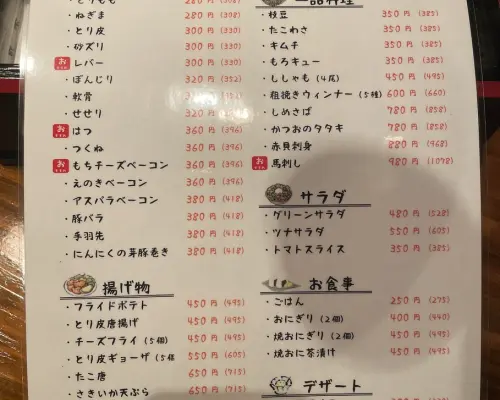 とりもも 280円(308)
・ねぎま 280円(308)
・とり皮 300円(330)
・砂ズリ 300円(330)
お レバー 300円(330)
・ぼんじり 320円(352)
・軟骨
・せせり 320円
お はつ 360円(396)
・つくね 360円(396)
お もちチーズベーコン 360円(396)
・えのきベーコン 360円(396)
・アスパラベーコン 380円(418)
・豚バラ 380円(418)
・手羽先 380円(418)
・にんにくの芽豚巻き 380円(418)
揚げ物
・フライドポテト 450円(495)
・とり皮唐揚げ 450円(495)
・チーズフライ(5個) 450円(495)
・とり皮ギョーザ(5個 550円(605)
・たこ唐 650円(715)
・さきいか天ぷら 650円(715)
一品料理
・枝豆 350円(385)
・たこわさ 350円(385)
・キムチ 350円(385)
・もろキュー 350円(385)
・ししゃも(4尾) 450円(495)
・粗挽きウィンナー(5種) 600円(660)
・しめさば 780円(858)
・かつおのタタキ 780円(858)
・赤貝刺身 880円(968)
お 馬刺し 980円(1078)
サラダ
・グリーンサラダ 480円(528)
・ツナサラダ 550円(605)
・トマトスライス 350円(385)
お食事
・ごはん 250円(275)
・おにぎり(2個) 400円(440)
・焼おにぎり(2個) 450円(495)
・焼おに茶漬け 450円(495)
デザート